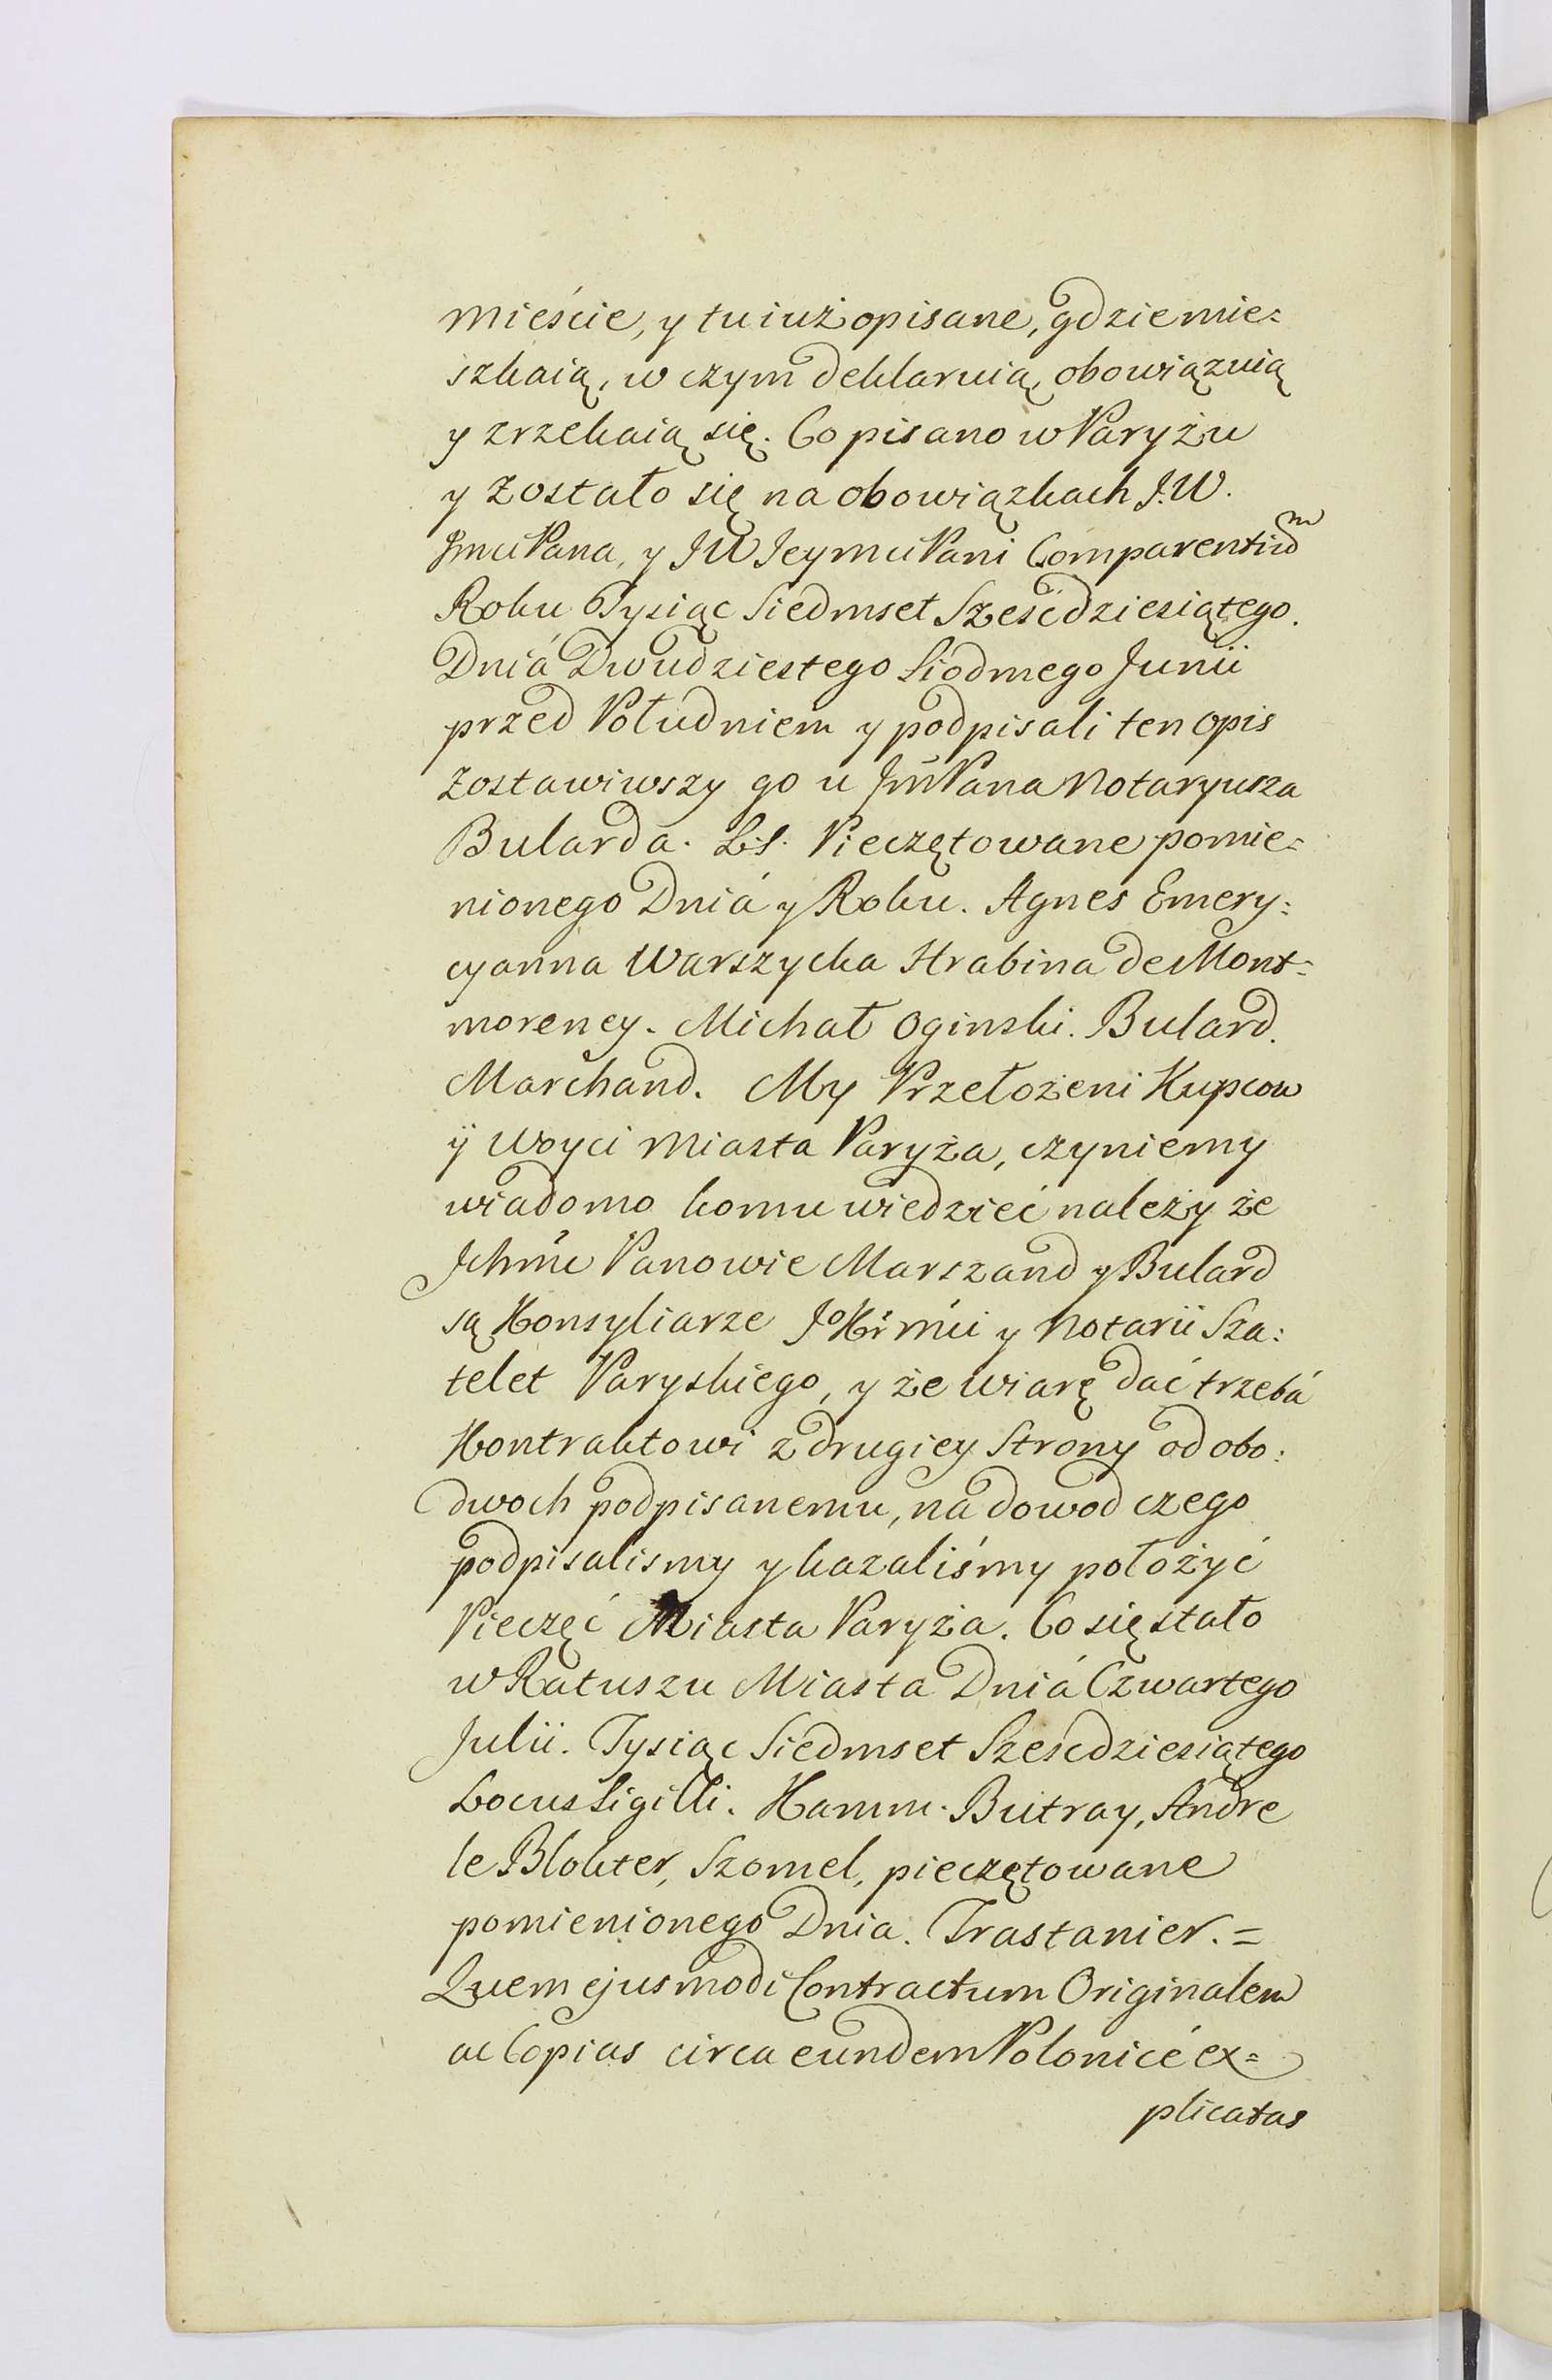 mieście, y tu iuż opisane, gdzie mie=
szkaią, w czym deklaruią, obowiązuią
y zrzekaią się. Co pisano w Paryżu
y zostało się na obowiązkach J.W.
Jmu Pana, y JW Jeymu Pani Comparentium
Roku Tysiąc Siedmset Sześćdziesiątego.
Dniá Dwudziestego Siodmego Junii
przed Południem y podpisali ten opis
zostawiwszy go u Jmu Pana Notaryusza
Bularda. L.S. Pieczętowane pomie=
nionego Dniá y Roku. Agnes Emery=
cyanna Warszycka Hrabina de Mont=
morency. Michał Oginski. Bulard.
Marchand. My Przełożeni Kupcow
ÿ Woyci Miasta Paryża, czyniemy
wiadomo komu wiedzieć należy że
Ichmć Panowie Marszand y Bulard
są Konsyliarze JoKrmći y Notarii Sza:
telet Paryskiego, y że wiarę dać trzebá
Kontraktowi z drugiey Strony od obo:
dwoch podpisanemu, na dowod czego
podpisalismy y kazaliśmy położyć
Pieczęć Miasta Paryża. Co się stało
w Ratuszu Miasta Dniá Czwartego
Julii. Tysiąc Siedmset Sześcdziesiątego
Locus Sigilli. Kamm. Butray, Andre
le Blokter, Szomel, pieczętowane
pomienionego Dnia. Trastanier. =
Quem ejusmodi Contractum Originalem
ac Copias circa eundem Polonicé ex=
plicatas